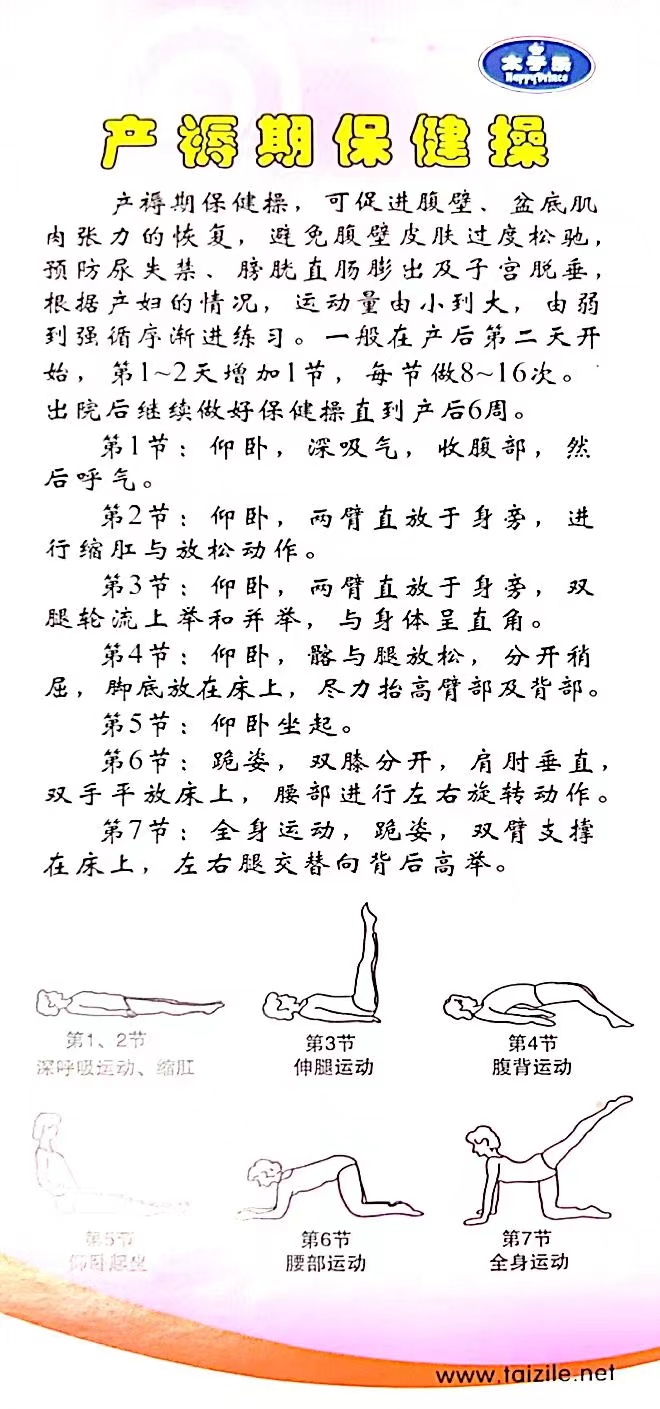 太子乐
HappyPrince
产褥期保健操
产褥期保健操，可促进腹壁、盆底肌
肉张力的恢复，避免腹壁皮肤过度松驰，
预防尿失禁、膀胱直肠膨出及子宫脱垂，
根据产妇的情况，运动量由小到大，由弱
到强循序渐进练习。一般在产后第二天开
始，第1~2天增加1节，每节做8~16次。
出院后继续做好保健操直到产后6周。
第1节：仰卧，深吸气，收腹部，然
后呼气。
第2节：仰卧，两臂直放于身旁，进
行缩肛与放松动作。
第3节：仰卧，两臂直放于身旁，双
腿轮流上举和并举，与身体呈直角。
第4节：仰卧，髂与腿放松，分开稍
屈，脚底放在床上，尽力抬高臂部及背部。
第5节：仰卧坐起。
第6节：跪姿，双膝分开，肩肘垂直，
双手平放床上，腰部进行左右旋转动作。
第7节：全身运动，跪姿，双臂支撑
在床上，左右腿交替向背后高举。
第1、2节
深呼吸运动、缩肛
第3节
伸腿运动
第4节
腹背运动
第5节
仰卧起坐
第6节
腰部运动
第7节
全身运动
www.taizile.net